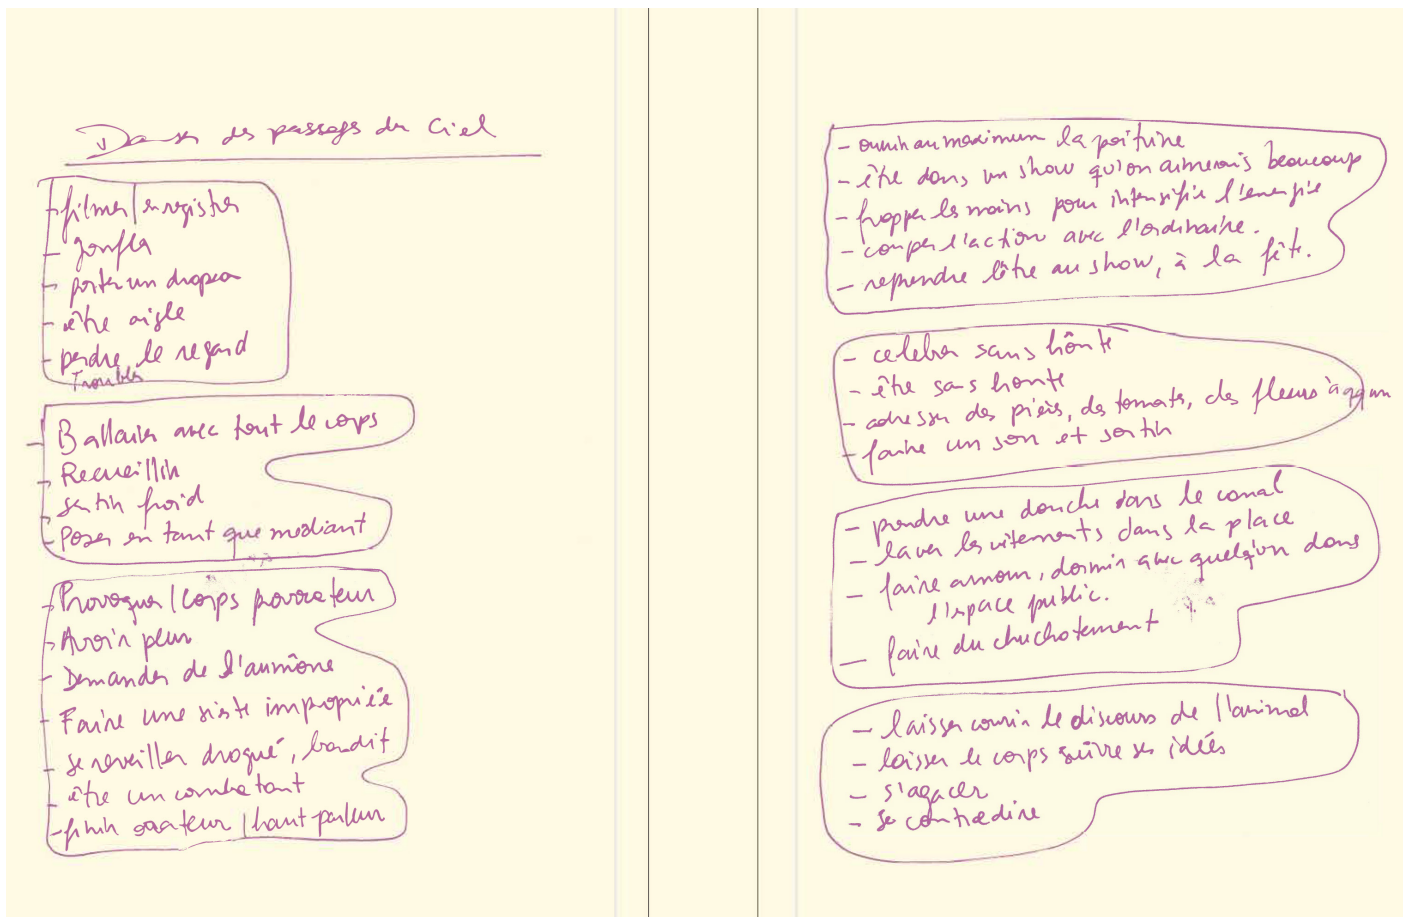 Danser des passages du Ciel
- filmer/enregistrer
- gonfler
- porter un drapeau
- être aigle
- perdre le regard
Troubler
- Ballaier avec tout le corps
- Recueillir
- sentir froid
- Poser en tant que mediant
- Provoquer/corps provocateur
- Avoir peur
- Demander de l'aumône
- Faire une sieste impropriée
- se reveiller drogué, bandit
- être un combatant
- finir orateur/haut-parleur
- ouvrir au maximum la poitrine
- être dans un show qu'on aimerais beaucoup
- frapper les mains pour intensifier l'energie
- couper l'action avec l'ordinaire.
- reprendre l'être au show, à la fête.
- celebrer sans hônte
- être sans honte
- adresser des pières, des tomates, des fleurs à qqun
- faire un son et sortir
- prendre une douche dans le canal
- laver les vêtements dans la place
- faire amour, dormir avec quelqu'un dans
l'espace public.
- faire du chuchotement
- laisser courir le discours de l'animal
- laisser le corps suivre ses idées
- s'agacer
- se contredire